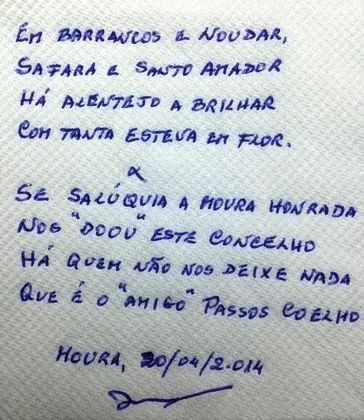 EM BARRANCOS E NOUDAR,
SAFARA E SANTO AMADOR
HÁ ALENTEJO A BRILHAR
COM TANTA ESTEVA EM FLOR.
α
SE SALÚQUIA A MOURA HONRADA
NOS "DOOU" ESTE CONCELHO
HÁ QUEM NÃO NOS DEIXE NADA
QUE É O "AMIGO" PASSOS COELHO
MOURA, 20/04/2.014